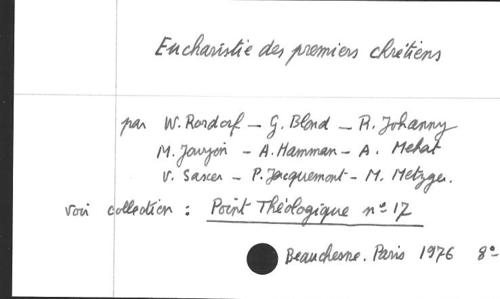 Eucharistie des premiers chrétiens
par W. Rordorf – G. Blond – R. Johanny
M. Jourjon – A. Hamman – A. Mehat
V. Saxer – P. Jacquemont – M. Metzger.
voir collection : Point Théologique n° 17
Beauchesne. Paris 1976 8°